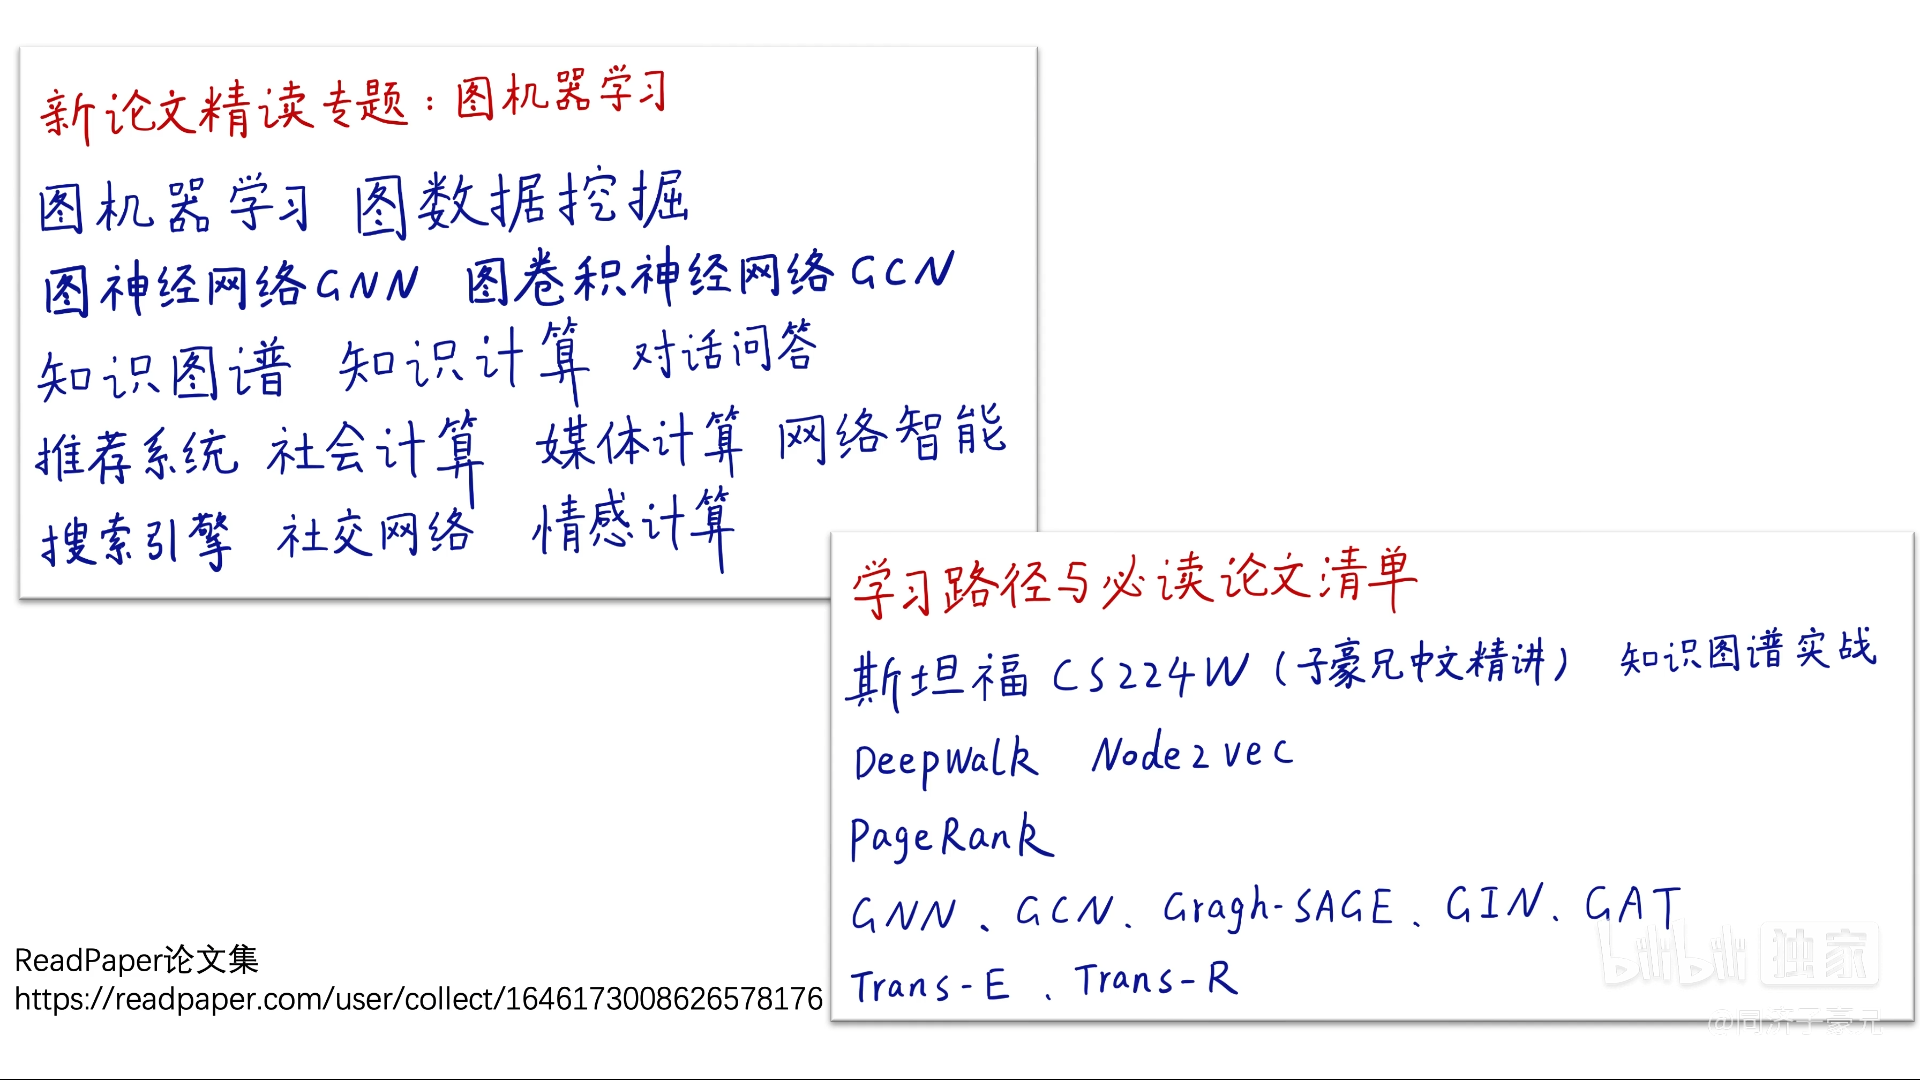 新论文精读专题：图机器学习
图机器学习 图数据挖掘
图神经网络GNN 图卷积神经网络GCN
知识图谱 知识计算 对话问答
推荐系统 社会计算 媒体计算 网络智能
搜索引擎 社交网络 情感计算
学习路径与必读论文清单
斯坦福CS224W（子豪兄中文精讲） 知识图谱实战
DeepWalk Node2vec
PageRank
GNN、GCN、Gragh-SAGE、GIN、GAT
Trans-E、Trans-R
ReadPaper论文集
https://readpaper.com/user/collect/1646173008626578176
bilibili 独家
@同济子豪兄